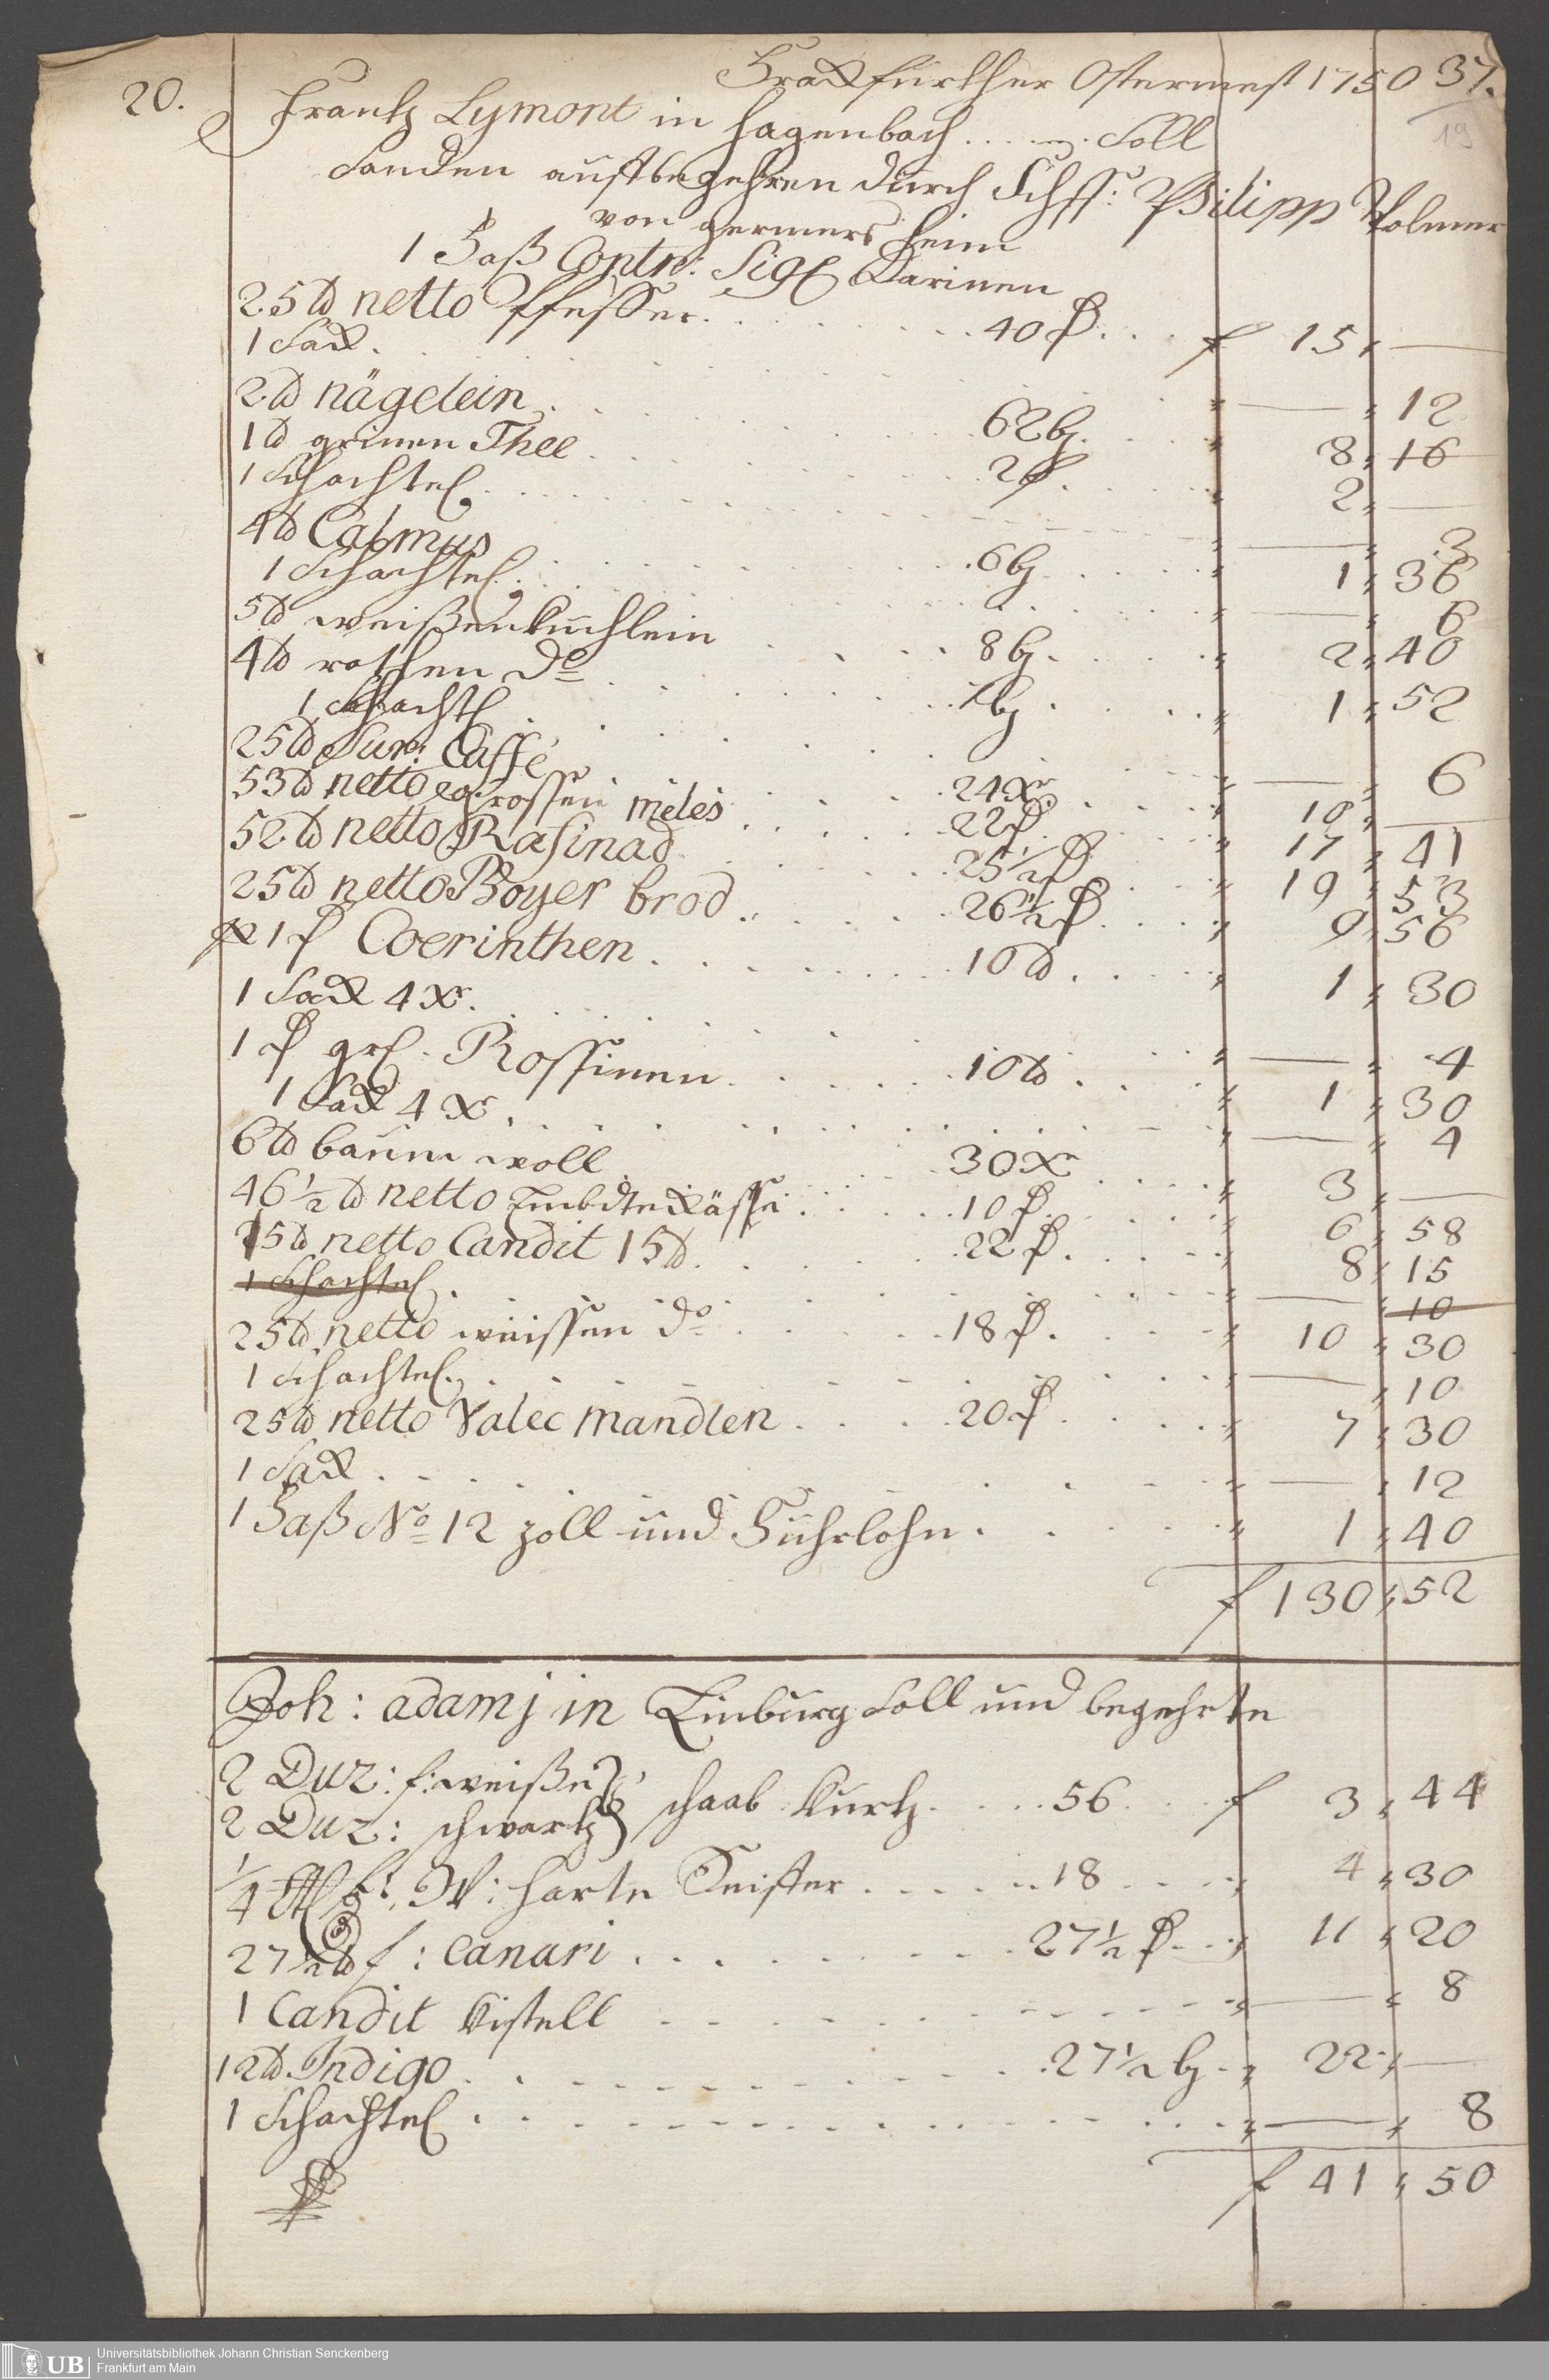 Franckfurther Ostermest 1750 37.
19
20. Frantz Lymont in Hagenbach .... Soll
Sanden auff begehren durch Schff: Philipp Volmer
von germersheim
1 Faß Contr: Sigl Darinen
25 ℔ netto Pfeffer . . . 40 β . . . f 15 " —
1 Sack . . . " — " 12
2 ℔ nägelein . . . 62 bz . . . " 8 " 16
1 ℔ grinen Thee . . . 2 f . . . " 2 " —
1 Schachtel . . . " — " 3
4 ℔ Calmus . . . 6 bz . . . " 1 " 36
1 Schachtel . . . " — " 6
5 ℔ weißenküchlein . . . 8 bz . . . " 2 " 40
4 ℔ rothen do . . . 7 bz . . . " 1 " 52
1 Schachtl . . . " — " 6
25 ℔ Sur: Caffé . . . 24 Xr . . . " 10 " —
53 ℔ netto grossen meles . . . 22 β . . . " 17 " 41
52 ℔ netto Rafinad . . . 25 1/2 β . . . " 19 " 53
25 ℔ netto Boyer brod . . . 26 1/2 β . . . " 9 " 56
1 f Coerinthen . . . 10 ℔ . . . " 1 " 30
1 Sack 4 Xr . . . " — " 4
1 f grl. Rossinen . . . 10 ℔ . . . " 1 " 30
1 Sack 4 Xr . . . " — " 4
6 ℔ baumwoll . . . 30 Xr . . . " 3 " —
46 1/2 ℔ netto . . . 10 β . . . " 6 " 58
25 ℔ netto Candit 15 ℔ . . . 22 β . . . " 8 " 15
1 Schachtel . . . " — " 10
25 ℔ netto weissen do . . . 18 β . . . " 10 " 30
1 Schachtel . . . " — " 10
25 ℔ netto Valec mandlen . . . 20 β . . . " 7 " 30
1 Sack . . . " — " 12
1 Faß No 12 zoll und Fuhrlohn . . . " 1 " 40
f 130 " 52
Joh: adamj in Limburg Soll und begehrte
2 Duz: f: weiße
2 Duz: schwartz } schaab Kurtz . . . 56 . . . f 3 " 44
1/4 W: harte . . . 18 . . . " 4 " 30
27 1/2 ℔ f: Canari . . . 27 1/2 β . . . " 11 " 20
1 Candit Kistell . . . " — " 8
12 ℔ Indigo . . . 27 1/2 bz . . . " 22 " —
1 Schachtel . . . " — " 8
f 41 " 50
UB Universitätsbibliothek Johann Christian Senckenberg
Frankfurt am Main